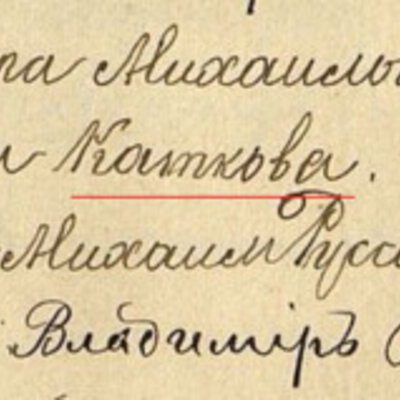 Михаилов
Каткова.
Михаил Русса
Владиміръ